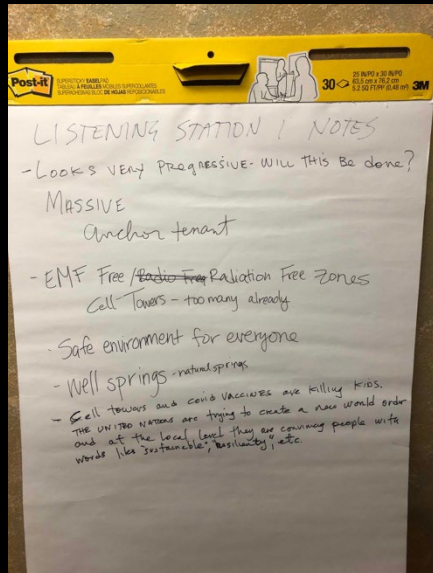 Post-it
SUPERSTICKY EASEL PAD
TABLEAU À FEUILLES MOBILES SUPERCOLLANTES
SUPERADHESIVAS BLOC DE HOJAS REPOSICIONABLES
30
25 IN/PO x 30 IN/PO
63,5 cm x 76,2 cm
5.2 SQ FT/PP (0,48 m²)
3M
LISTENING STATION 1 NOTES
- LOOKS VERY PROGRESSIVE - WILL THIS BE done?
MASSIVE
anchor tenant
- EMF Free / Radio Free Radiation Free Zones
Cell Towers - too many already
- Safe environment for everyone
- Well springs - natural springs
- Cell towers and covid VACCINES are killing kids.
THE UNITED NATIONS are trying to create a new world order
and at the local level they are convincing people with
words like "sustainable", "resiliency", etc